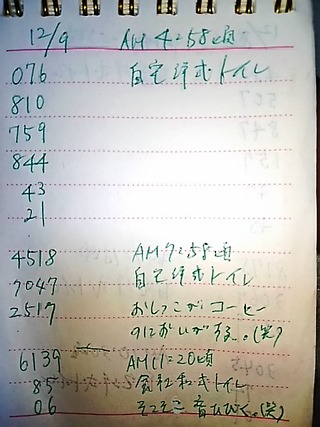 12/9 AM 4:58頃
076 自宅洋式トイレ
810
759
844
43
21
4518 AM7:58頃
7047 自宅洋式トイレ
2517 おしっこがコーヒー
のにおいがする。(笑)
6139 AM11:20頃
85 会社和式トイレ
06 そこそこ音ひびく。(笑)